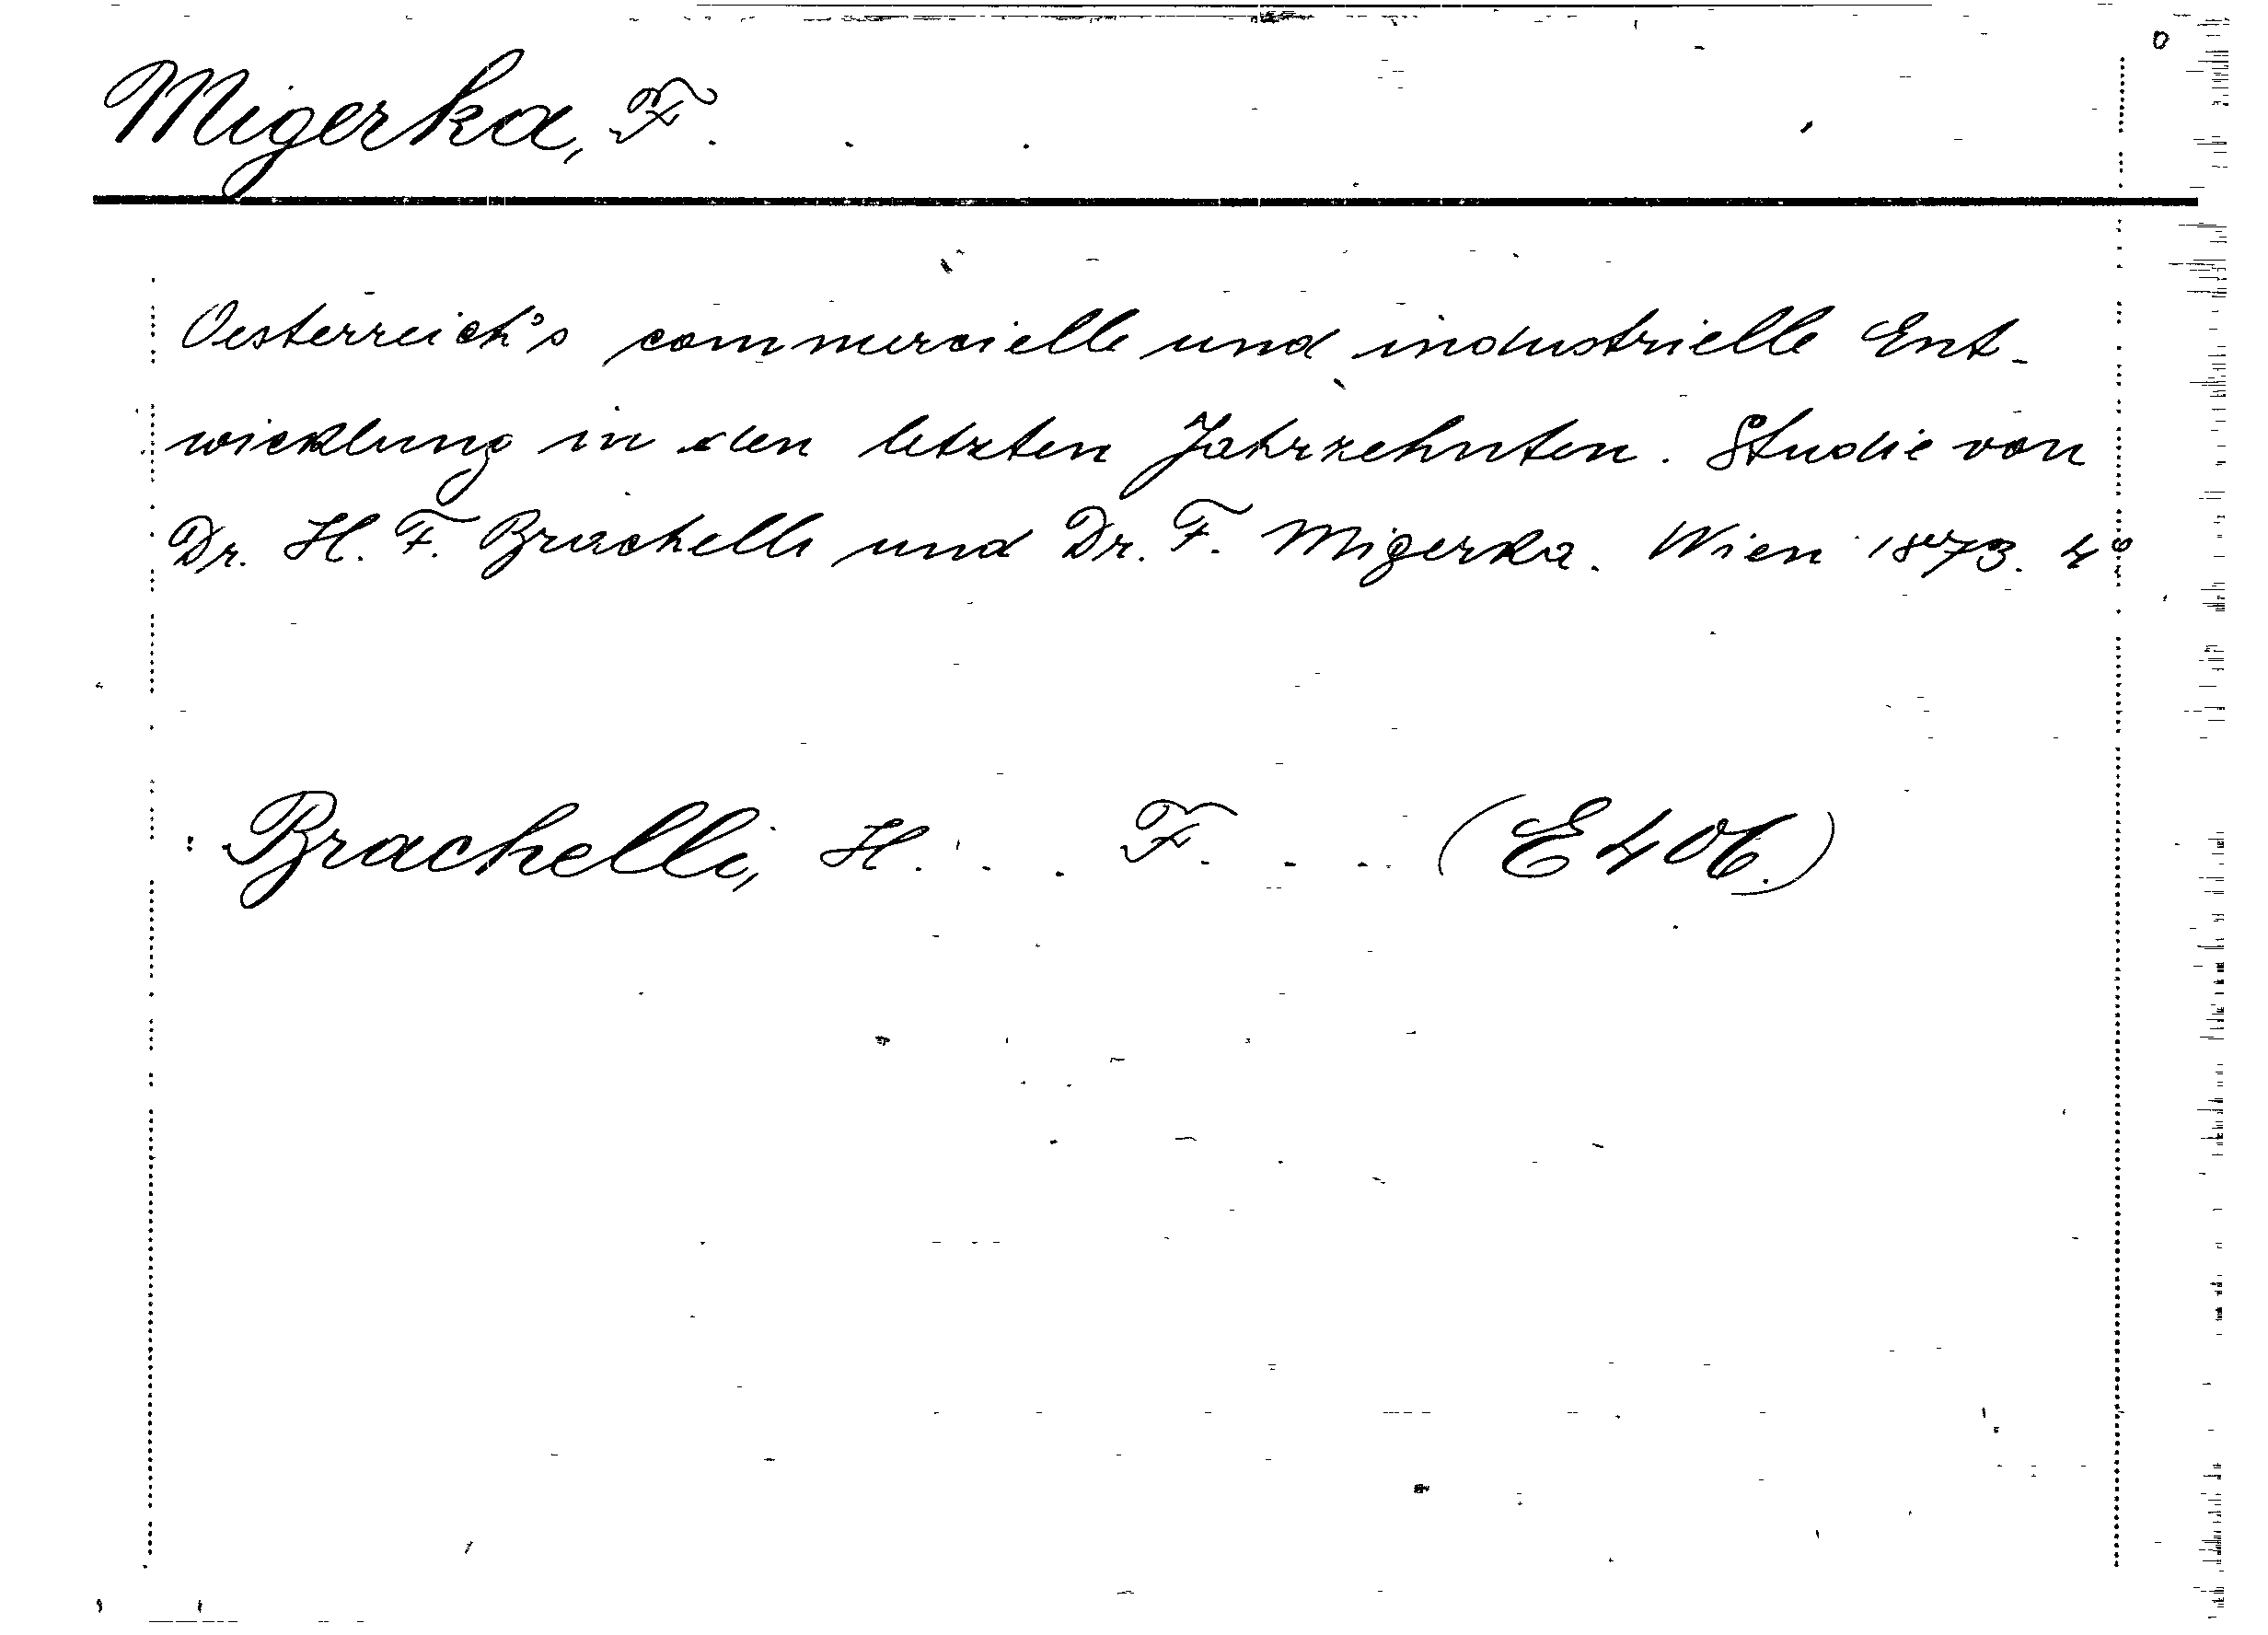 Migerka, F. . .
Oesterreich's commercielle und industrielle Ent-
wicklung in den letzten Jahrzehnten. Studie von
Dr. H. F. Brachelli und Dr. F. Migerka. Wien 1873. 4°
Brachelli, H. . . F. . . (E406.)